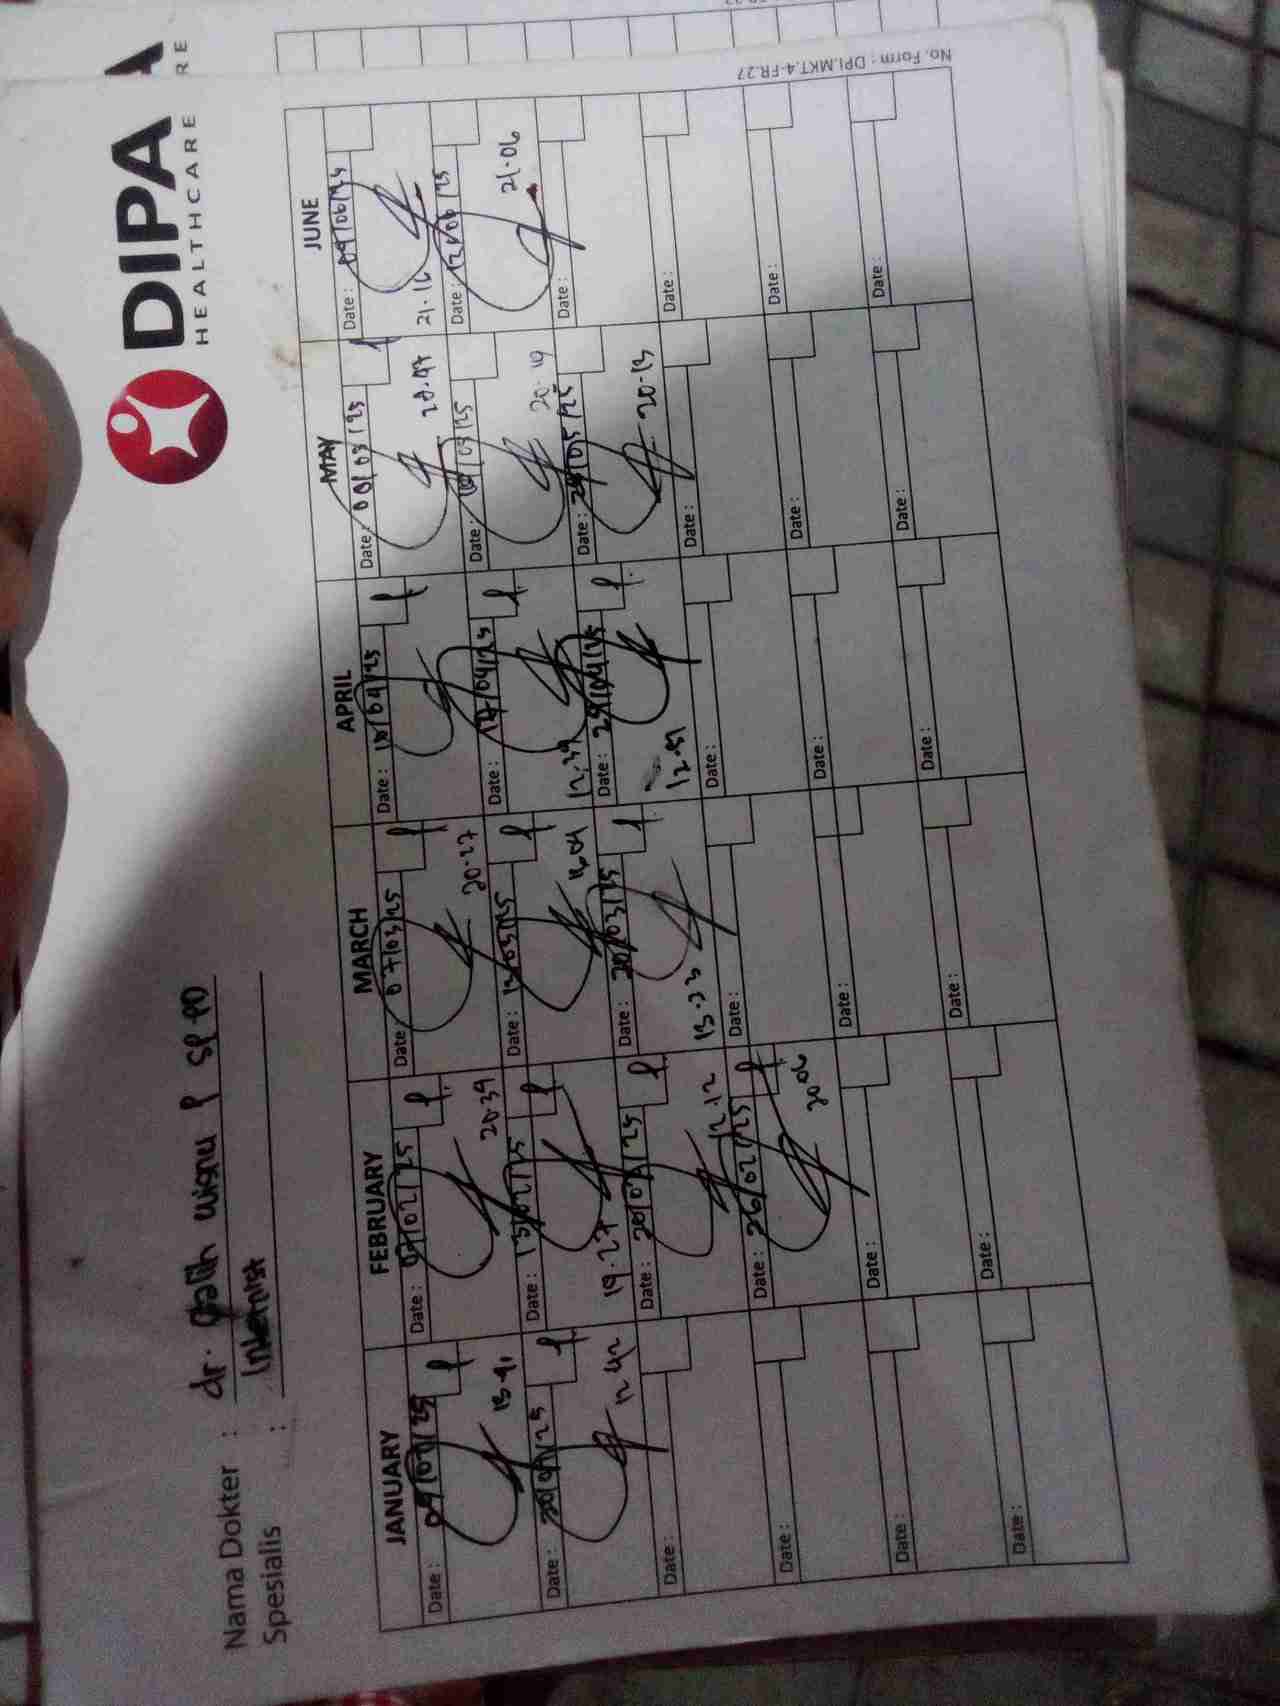 DIPA
HEALTHCARE
Nama Dokter : dr. Galih Wisnu P SP PD
Spesialis : Internist
JANUARY FEBRUARY MARCH APRIL MAY JUNE
Date : 09/01/25 Date : 07/02/25 Date : 07/03/25 Date : 10/04/25 Date : Date : 09/06/25
13.41 20.39 20.27 21.16
Date : 30/01/25 Date : 13/02/25 Date : 12/03/25 Date : 17/04/25 Date : Date : 12/06/25
12.42 19.27 13.04 12.39 20.19 21.06
Date : Date : 20/02/25 Date : 20/03/25 Date : 29/04/25 Date : 28/05/25 Date :
12.12 13.23 12.51 20.13
Date : Date : 26/02/25 Date : Date : Date : Date :
20.06
Date : Date : Date : Date : Date : Date :
Date : Date : Date : Date : Date : Date :
No. Form : DPI.MKT.4-FR.27
RE